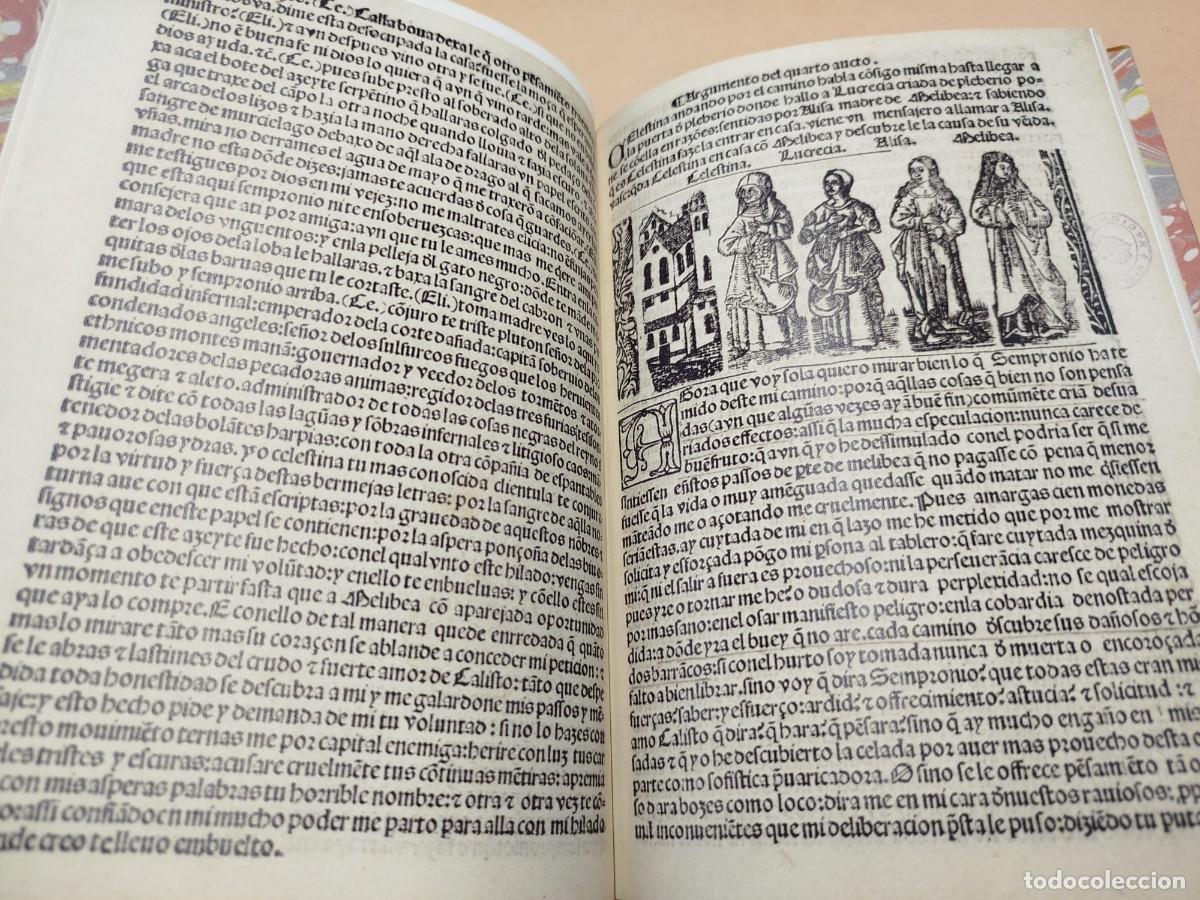 ministro: (Eli.) ⁊ avn despues vino otra y se fue. (Ce.)
dios ayuda. ⁊c̄. (Ce.) pues sube presto al soberado alto
xa aca el bote del azeyte serpētino q̄ hallaras colgado
ga que traxe del cāpo la otra noche quando llouia ⁊ fazia escuro
el arca de los lizos ⁊ hazia la mano derecha fallaras vn papel
sangre de murcielago debaxo de aq̄l ala de drago al q̄ sacamos ayer las
vñas. mira no derrames el agua de mayo q̄ me traxerō a cōfacionar. (Eli.)
madre no esta dōde dizes: jamas te acuerdas
me testigues por dios en mi vejez: no me maltrates elicia: no
que esta aqui sempronio ni te ensoberuezcas: que mas me
consejera que a ti por amiga: avn que tu le ames mucho. Entra en la ca
mara de los vnguentos: ⁊ en la pelleja dl gato negro: dōde te māde me
ter los ojos de la loba le hallaras. ⁊ baxa la sangre del cabron ⁊ vnas po
quitas dlas baruas que tu le cortaste. (Eli.) toma madre veslo aqui
me subo y sempronio arriba. (Ce.) cōjuro te triste pluton señor de la pro
fundidad infernal: emperador de la corte dañada: capitā soberuio de los
condenados angeles: señor de los sulfureos fuegos que los heruientes
ethnicos montes manā: gouernador y veedor de los tormētos ⁊ ator
mentadores de las pecadoras animas: regidor de las tres furias: tesifo
te megera ⁊ aleto. administrador de todas las cosas negras del reyno
stigie ⁊ dite cō todas las lagūas y sōbras infernales ⁊ litigioso caos: mā
tenedor de las bolātes harpias: con toda la otra cōpañia de espantables
⁊ pauorosas ydras. yo celestina tu mas conoscida clientula te conjuro
por la virtud y fuerça destas bermejas letras: por la sangre de aq̄lla no
turna aue con que estā escriptas: por la grauedad de aquestos nōbres ⁊
signos que eneste papel se contienen: por la aspera ponçoña de las biuo
ras de que este azeyte fue hecho: conel qual vnto este hilado: vengas sin
tardāça a obedescer mi volūtad: y enello te enbueluas: y cōello estes sin
vn momento te partir fasta que a Melibea cō aparejada oportunidad
que aya lo compre. E conello de tal manera quede enrredada q̄ quāto
mas lo mirare tāto mas su coraçon se ablande a conceder mi peticion: ⁊
se le abras ⁊ lastimes del crudo ⁊ fuerte amor de Calisto: tāto que despe
dida toda honestidad se descubra a mi y me galardone mis passos y mē
saje: y esto hecho pide y demanda de mi tu voluntad: si no lo hazes con
presto mouimiēto ternas me por capital enemiga: herire con luz tus car
celes tristes y escuras: acusare cruelmēte tus cōtinuas mētiras: apremia
con mis asperas palabras tu horrible nombre: ⁊ otra ⁊ otra vez te cō
orassi confiādo en mi mucho poder me parto para alla con mi hilado
nde creo te lleuo embuelto.
Argumento del quarto aucto.
Celestina andando por el camino habla cōsigo misma hasta llegar a
la puerta d̄ pleberio donde hallo a Lucrecia criada de pleberio po-
ne se cōella en razōes: sentidas por Alisa madre de Melibea: ⁊ sabiendo
q̄ es Celestina faze la entrar en casa. viene vn mensajero a llamar a Alisa.
vase: q̄da Celestina en casa cō Melibea y descubre le la causa de su venida.
Celestina. Lucrecia. Alisa. Melibea.
AGora que voy sola quiero mirar bien lo q̄ Sempronio ha te
mido deste mi camino: porq̄ aq̄llas cosas q̄ bien no son pensa
das (avn que algūas vezes ayā buē fin) comūmēte criā desua
riados effectos: assi q̄ la mucha especulacion: nunca carece de
buē fruto: q̄ avn q̄ yo he dissimulado conel podria ser q̄ si me
sintiessen enstos passos de pte de melibea q̄ no pagasse cō pena q̄ menor
fuesse q̄ la vida o muy amēguada quedasse quādo matar no me q̄siessen
māteādo me o açotando me cruelmente. Pues amargas cien monedas
seriā estas. ay cuytada de mi en q̄ lazo me he metido que por me mostrar
solicita y esforçada pōgo mi psona al tablero: q̄ fare cuytada mezquina d̄
mi: q̄ ni el salir a fuera es prouechoso: ni la perseuerācia caresce de peligro
pues yre o tornar me he: o dudosa ⁊ dura perplexidad: no se qual escoja
por mas sano: enel osar manifiesto peligro: enla cobardia denostada per
dida: a dōde yra el buey q̄ no are. cada camino dscubre sus dañosos ⁊ hō
dos barrācos: si conel hurto soy tomada nunca d̄ muerta o encoroçada
falto a bien librar. si no voy q̄ dira Sempronio: que todas estas eran mis
fuerças: saber: y esfuerço: ardid: ⁊ offrecimiento: astucia: ⁊ solicitud: ⁊ su
amo Calisto q̄ dira: q̄ hara: q̄ pēsara: sino q̄ ay mucho engaño en mis pi
sadas ⁊ q̄ yo he descubierto la celada por auer mas prouecho desta otra
parte como sofistica puaricadora. O si no se le offrece pēsamiēto tā odio
so dara bozes como loco: dira me en mi cara dnuestos rauiosos: pp
mil inconueniētes que mi deliberacion psta le puso: diziēdo tu puta
todocoleccion